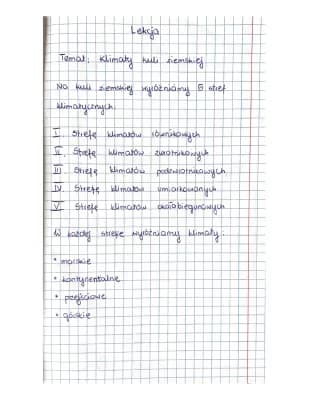 Lekcja
Temat: Klimaty kuli ziemskiej
Na kuli ziemskiej wyróżniamy 5 stref
klimatycznych.
I. Strefę klimatów równikowych
II. Strefę klimatów zwrotnikowych
III. Strefę klimatów podzwrotnikowych
IV. Strefę klimatów umiarkowanych
V. Strefę klimatów okołobiegunowych
W każdej strefie wyróżniamy klimaty:
• morskie
• kontynentalne
• przejściowe
• górskie